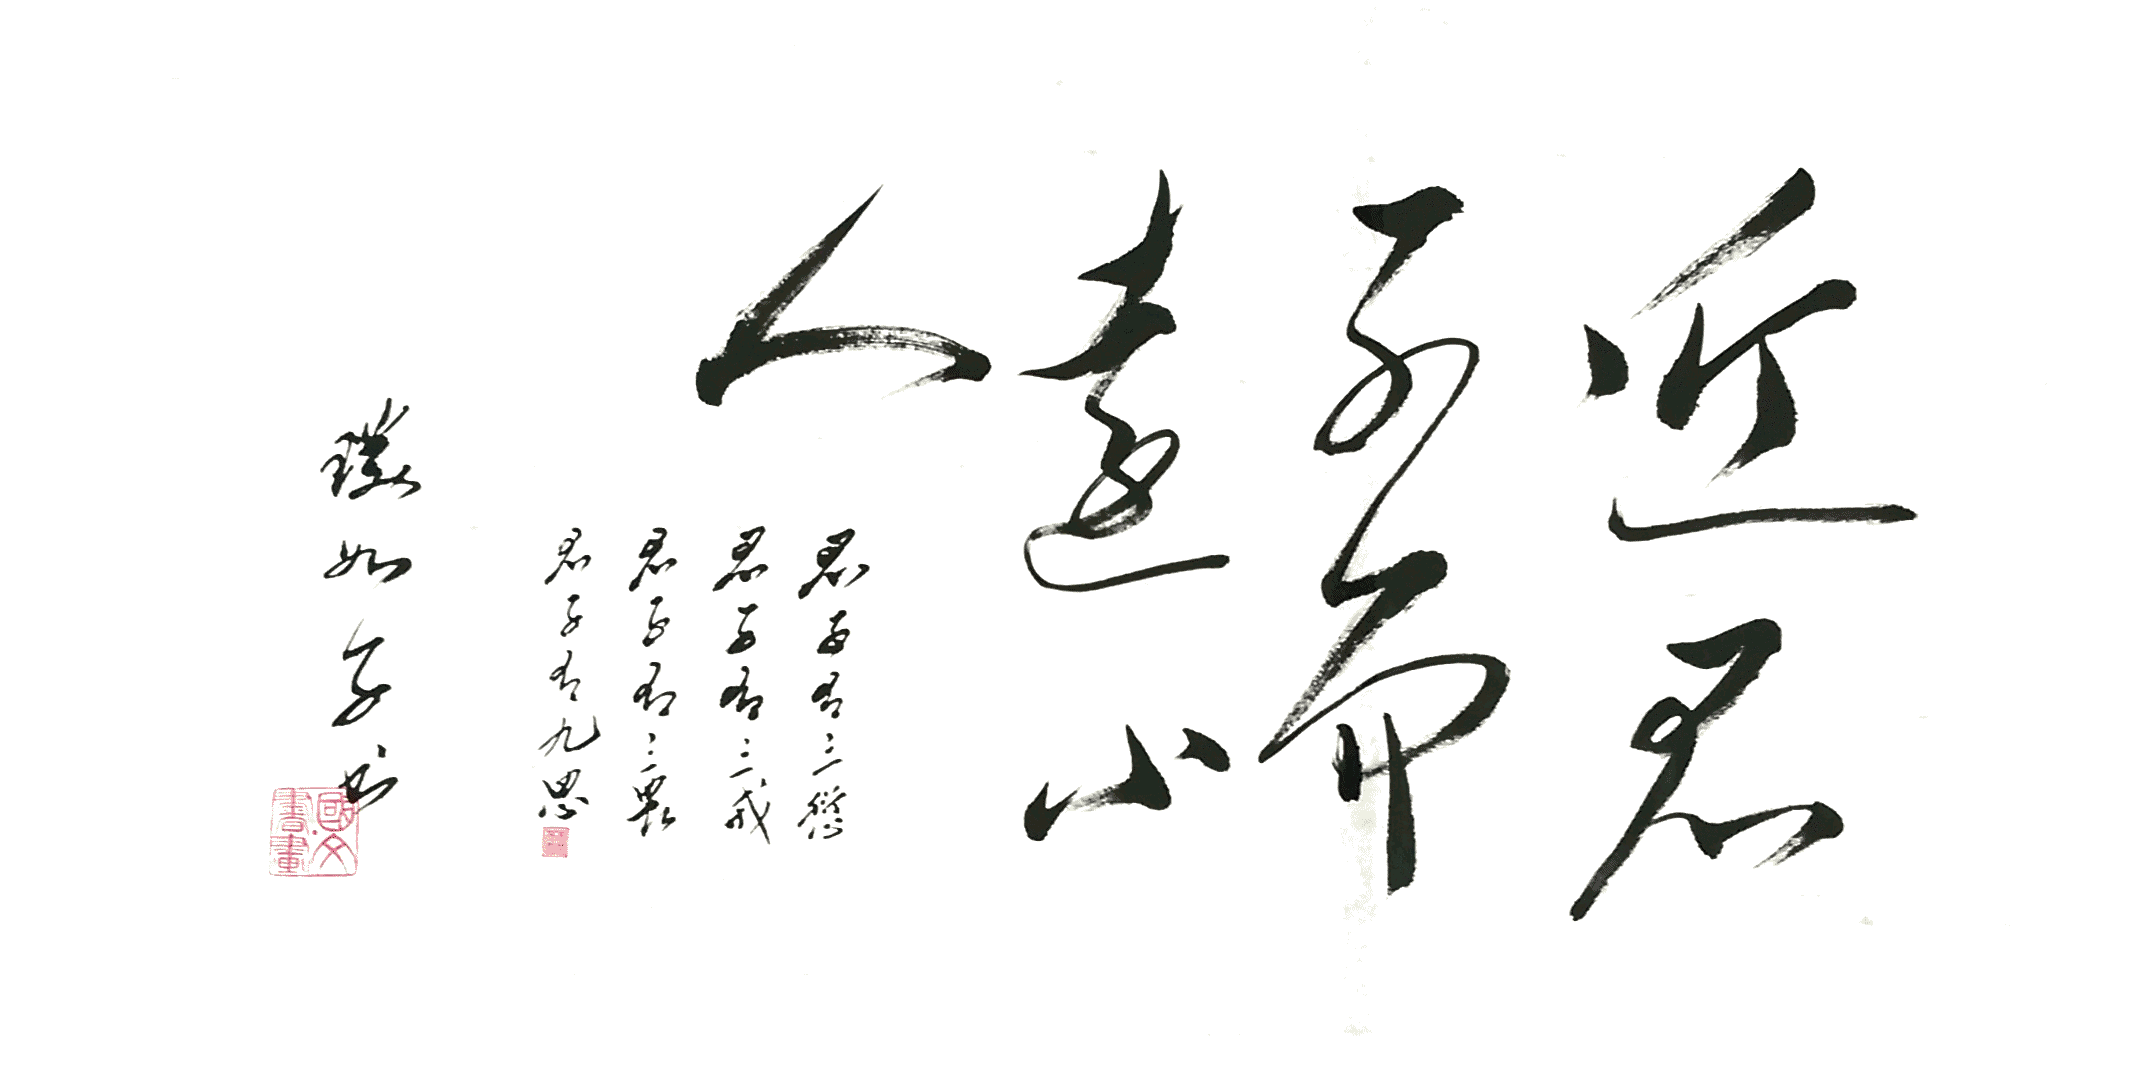 近君
子而
遠小
人
君子有三愆
君子有三戒
君子有三畏
君子有九思
璞如书
國文
書畫